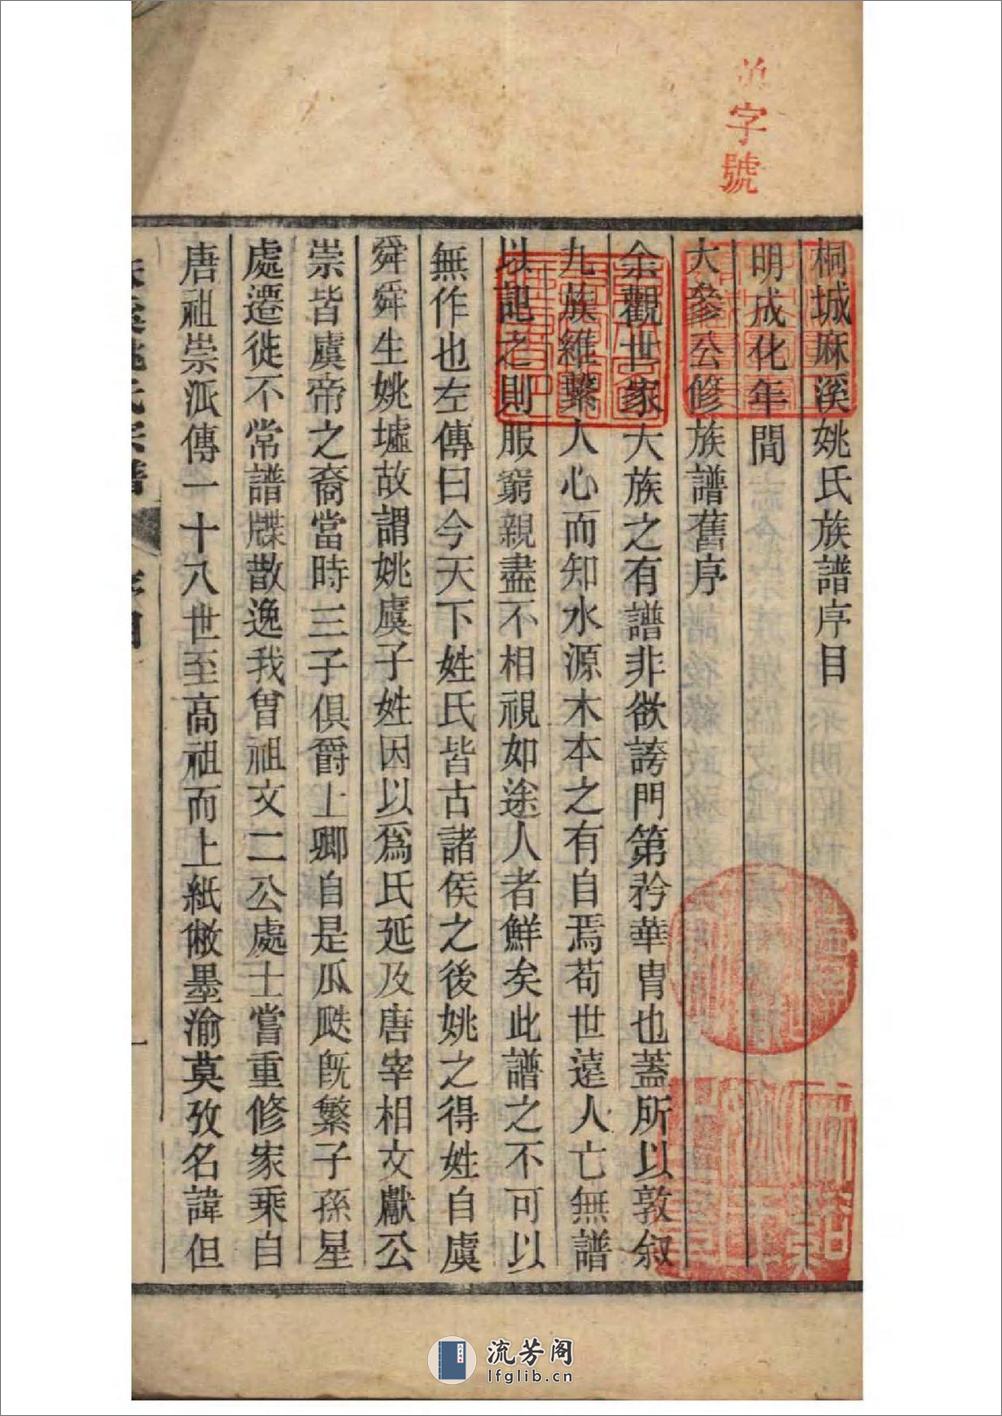 字號
桐城麻溪姚氏族譜序目
明成化年間
大參公修族譜舊序
余觀世家大族之有譜非欲誇門第矜華胄也蓋所以敦叙
九族維繫人心而知水源木本之有自焉苟世遠人亡無譜
以記之則服窮親盡不相視如途人者鮮矣此譜之不可以
無作也左傳曰今天下姓氏皆古諸侯之後姚之得姓自虞
舜舜生姚墟故謂姚虞子姓因以爲氏延及唐宰相文獻公
崇皆虞帝之裔當時三子俱爵上卿自是瓜瓞旣繁子孫星
處遷徙不常譜牒散逸我曾祖文二公處士嘗重修家乘自
唐祖崇派傳一十八世至高祖而上紙敝墨渝莫攷名諱但
姚氏宗譜
一
流芳阁
lfglib.cn